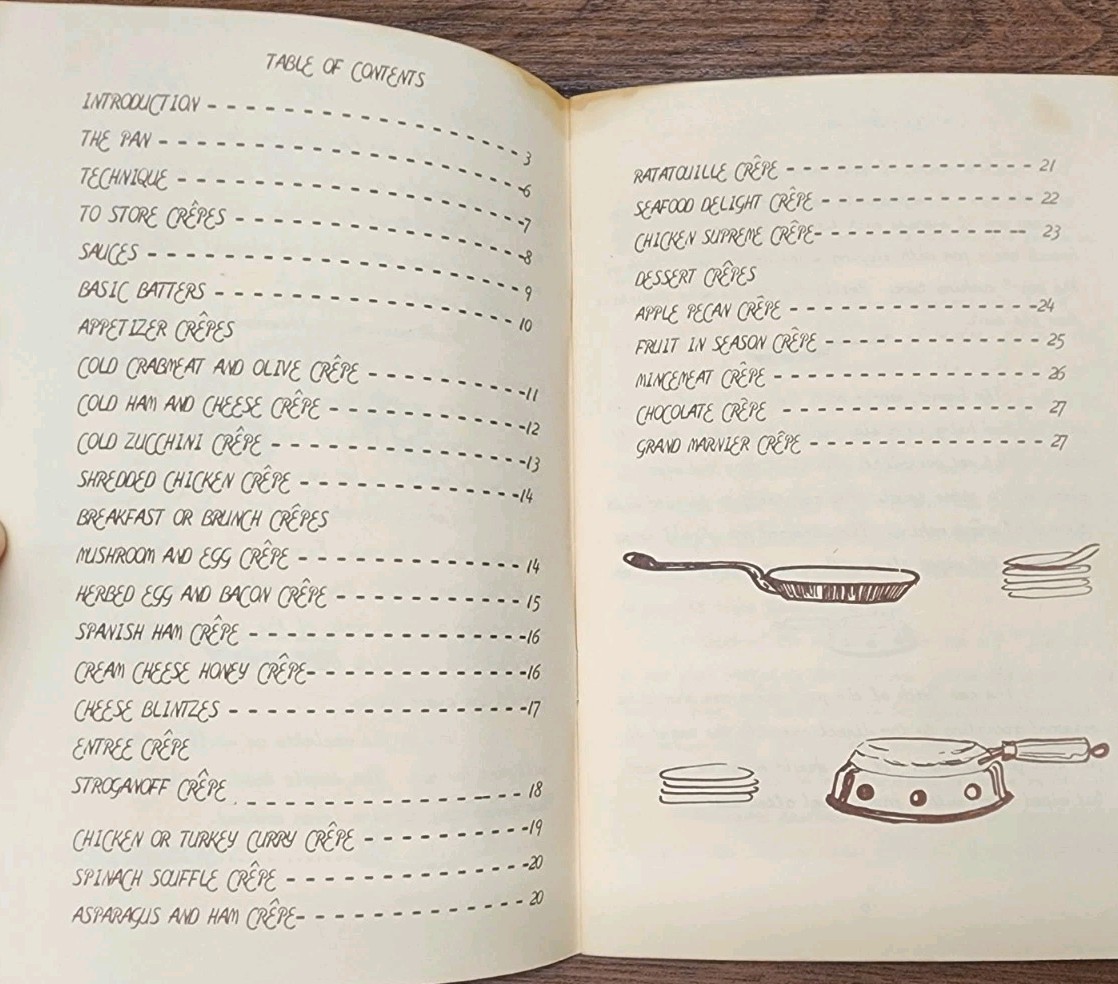 TABLE OF CONTENTS
INTRODUCTION - - - - - - - - - - - - - - 3
THE PAN - - - - - - - - - - - - - - - - 6
TECHNIQUE - - - - - - - - - - - - - - - 7
TO STORE CRÊPES - - - - - - - - - - - - - 8
SAUCES - - - - - - - - - - - - - - - - 9
BASIC BATTERS - - - - - - - - - - - - - - 10
APPETIZER CRÊPES
COLD CRABMEAT AND OLIVE CRÊPE - - - - - - - 11
COLD HAM AND CHEESE CRÊPE - - - - - - - - - 12
COLD ZUCCHINI CRÊPE - - - - - - - - - - - 13
SHREDDED CHICKEN CRÊPE - - - - - - - - - - 14
BREAKFAST OR BRUNCH CRÊPES
MUSHROOM AND EGG CRÊPE - - - - - - - - - - 14
HERBED EGG AND BACON CRÊPE - - - - - - - - 15
SPANISH HAM CRÊPE - - - - - - - - - - - - 16
CREAM CHEESE HONEY CRÊPE - - - - - - - - - 16
CHEESE BLINTZES - - - - - - - - - - - - - 17
ENTREE CRÊPE
STROGANOFF CRÊPE - - - - - - - - - - - - 18
CHICKEN OR TURKEY CURRY CRÊPE - - - - - - - 19
SPINACH SOUFFLE CRÊPE - - - - - - - - - - 20
ASPARAGUS AND HAM CRÊPE - - - - - - - - - 20
RATATOUILLE CRÊPE - - - - - - - - - - - - - 21
SEAFOOD DELIGHT CRÊPE - - - - - - - - - - - 22
CHICKEN SUPREME CRÊPE - - - - - - - - - - - 23
DESSERT CRÊPES
APPLE PECAN CRÊPE - - - - - - - - - - - - - 24
FRUIT IN SEASON CRÊPE - - - - - - - - - - - 25
MINCEMEAT CRÊPE - - - - - - - - - - - - - - 26
CHOCOLATE CRÊPE - - - - - - - - - - - - - 27
GRAND MARNIER CRÊPE - - - - - - - - - - - - 27